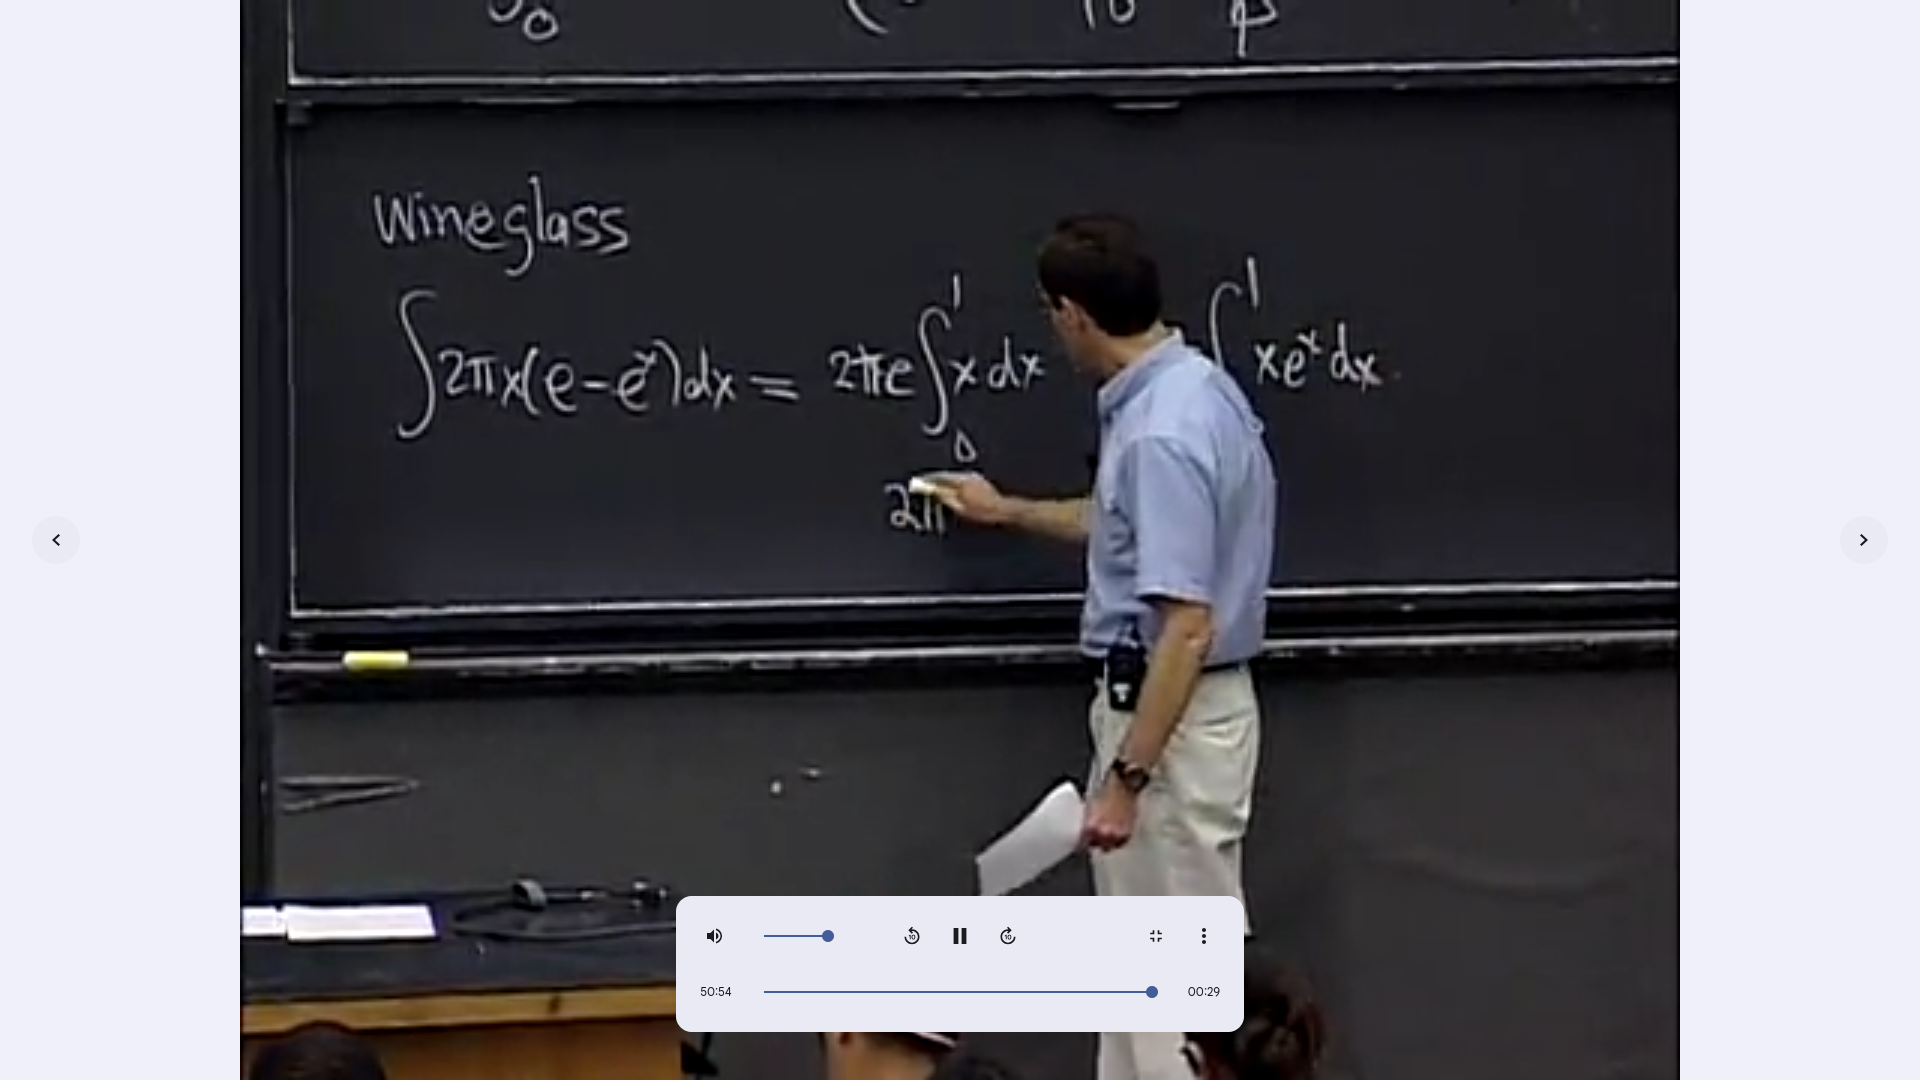 Wineglass
∫2πx(e-eˣ)dx = 2πe ∫₀¹ x dx ∫¹ xeˣdx
2π
50:54 00:29